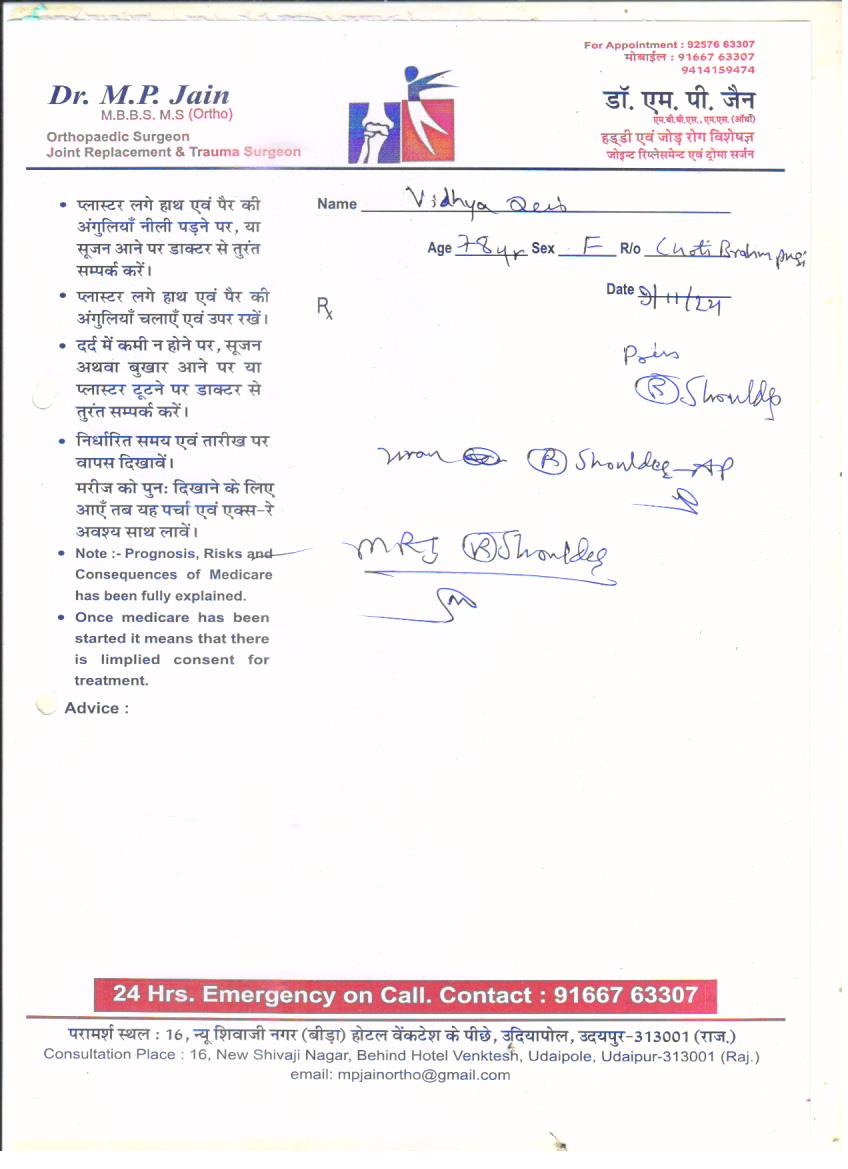 For Appointment : 92576 63307
मोबाईल : 91667 63307
9414159474
Dr. M.P. Jain
M.B.B.S. M.S (Ortho)
Orthopaedic Surgeon
Joint Replacement & Trauma Surgeon
डॉ. एम. पी. जैन
एम.बी.बी.एस., एम.एस. (ऑर्थो)
हड्डी एवं जोड़ रोग विशेषज्ञ
जोइन्ट रिप्लेसमेन्ट एवं ट्रोमा सर्जन
Name Vidhya
Age 78 yr Sex F R/o Choti
Date 9/11/24
Rx
(R) Shoulder
(R) Shoulder - AP
MRI (R) Shoulder
• प्लास्टर लगे हाथ एवं पैर की
अंगुलियाँ नीली पड़ने पर, या
सूजन आने पर डाक्टर से तुरंत
सम्पर्क करें।
• प्लास्टर लगे हाथ एवं पैर की
अंगुलियाँ चलाएँ एवं उपर रखें।
• दर्द में कमी न होने पर, सूजन
अथवा बुखार आने पर या
प्लास्टर टूटने पर डाक्टर से
तुरंत सम्पर्क करें।
• निर्धारित समय एवं तारीख पर
वापस दिखावें।
मरीज को पुनः दिखाने के लिए
आएँ तब यह पर्चा एवं एक्स-रे
अवश्य साथ लावें।
• Note :- Prognosis, Risks and
Consequences of Medicare
has been fully explained.
• Once medicare has been
started it means that there
is limplied consent for
treatment.
Advice :
24 Hrs. Emergency on Call. Contact : 91667 63307
परामर्श स्थल : 16, न्यू शिवाजी नगर (बीड़ा) होटल वेंकटेश के पीछे, उदियापोल, उदयपुर-313001 (राज.)
Consultation Place : 16, New Shivaji Nagar, Behind Hotel Venktesh, Udaipole, Udaipur-313001 (Raj.)
email: mpjainortho@gmail.com